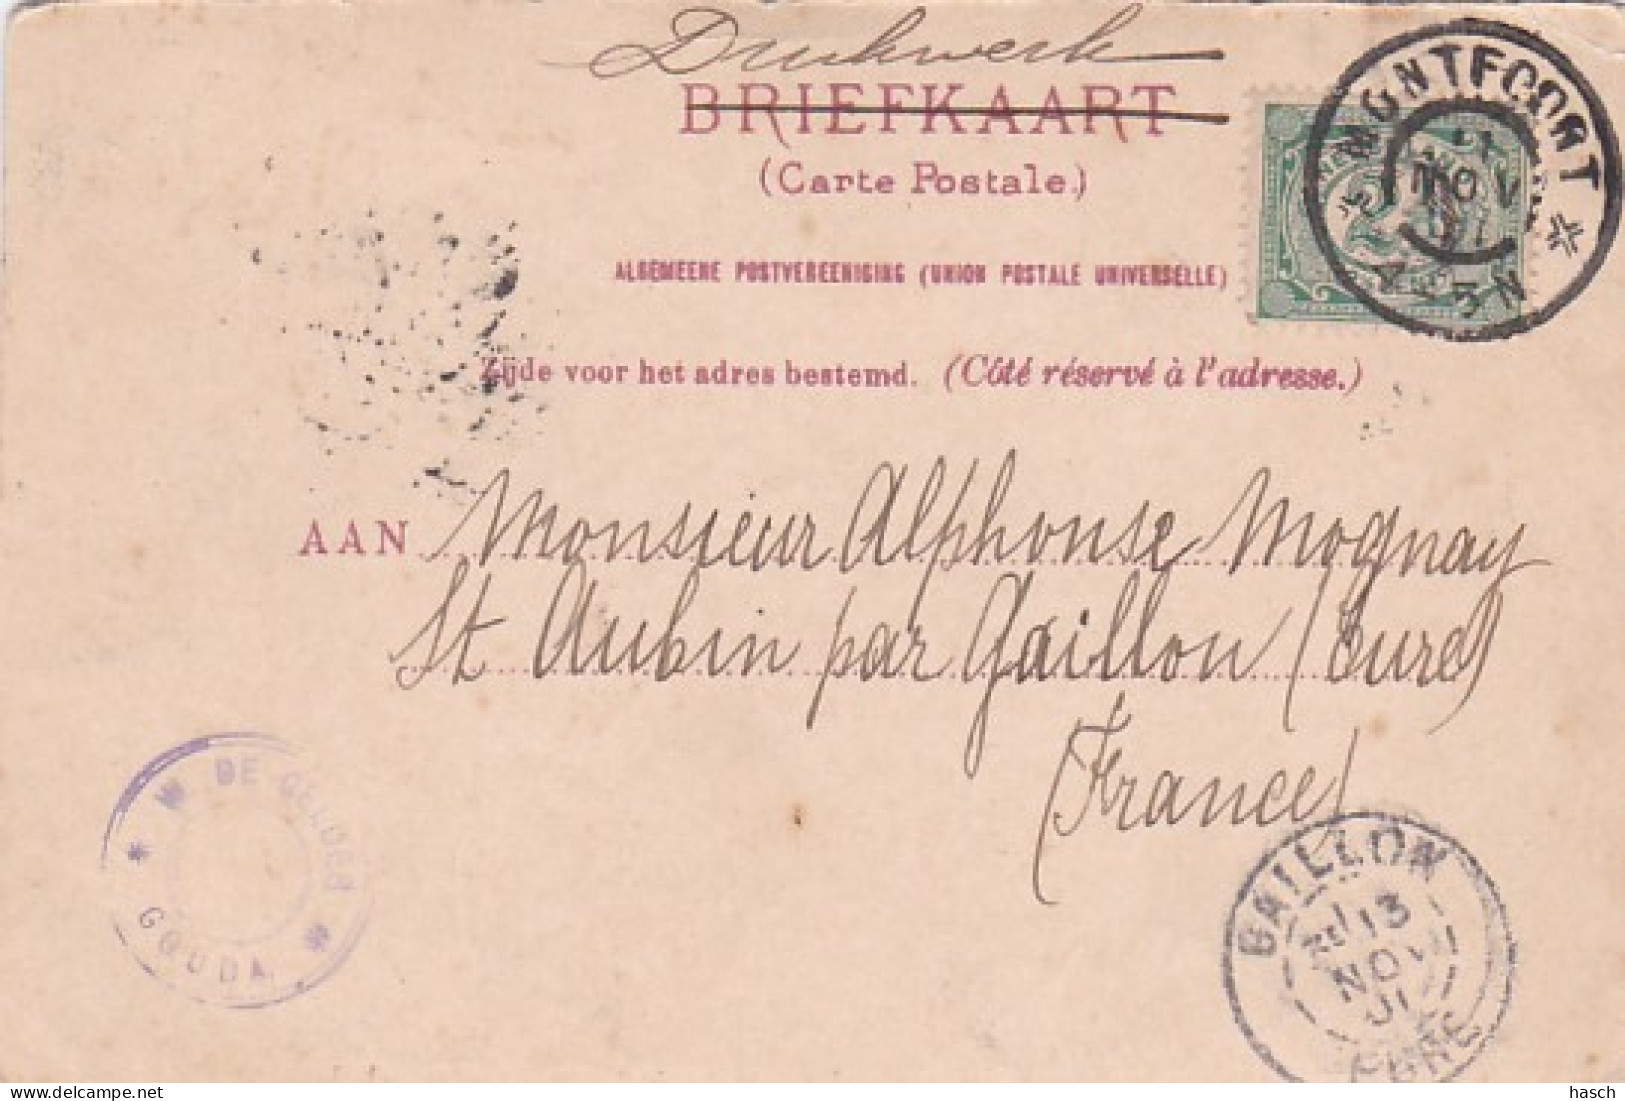 Drukwerk
BRIEFKAART
(Carte Postale.)
ALGEMEENE POSTVEREENIGING (UNION POSTALE UNIVERSELLE)
Zijde voor het adres bestemd. (Côté réservé à l'adresse.)
MONTFOORT
11 NOV 01
AAN Monsieur Alphonse Mognay
St Aubin par Gaillon (Eure)
(France)
W. DE GELDER
GOUDA
GAILLON
13
NOV
01
EURE
hasch